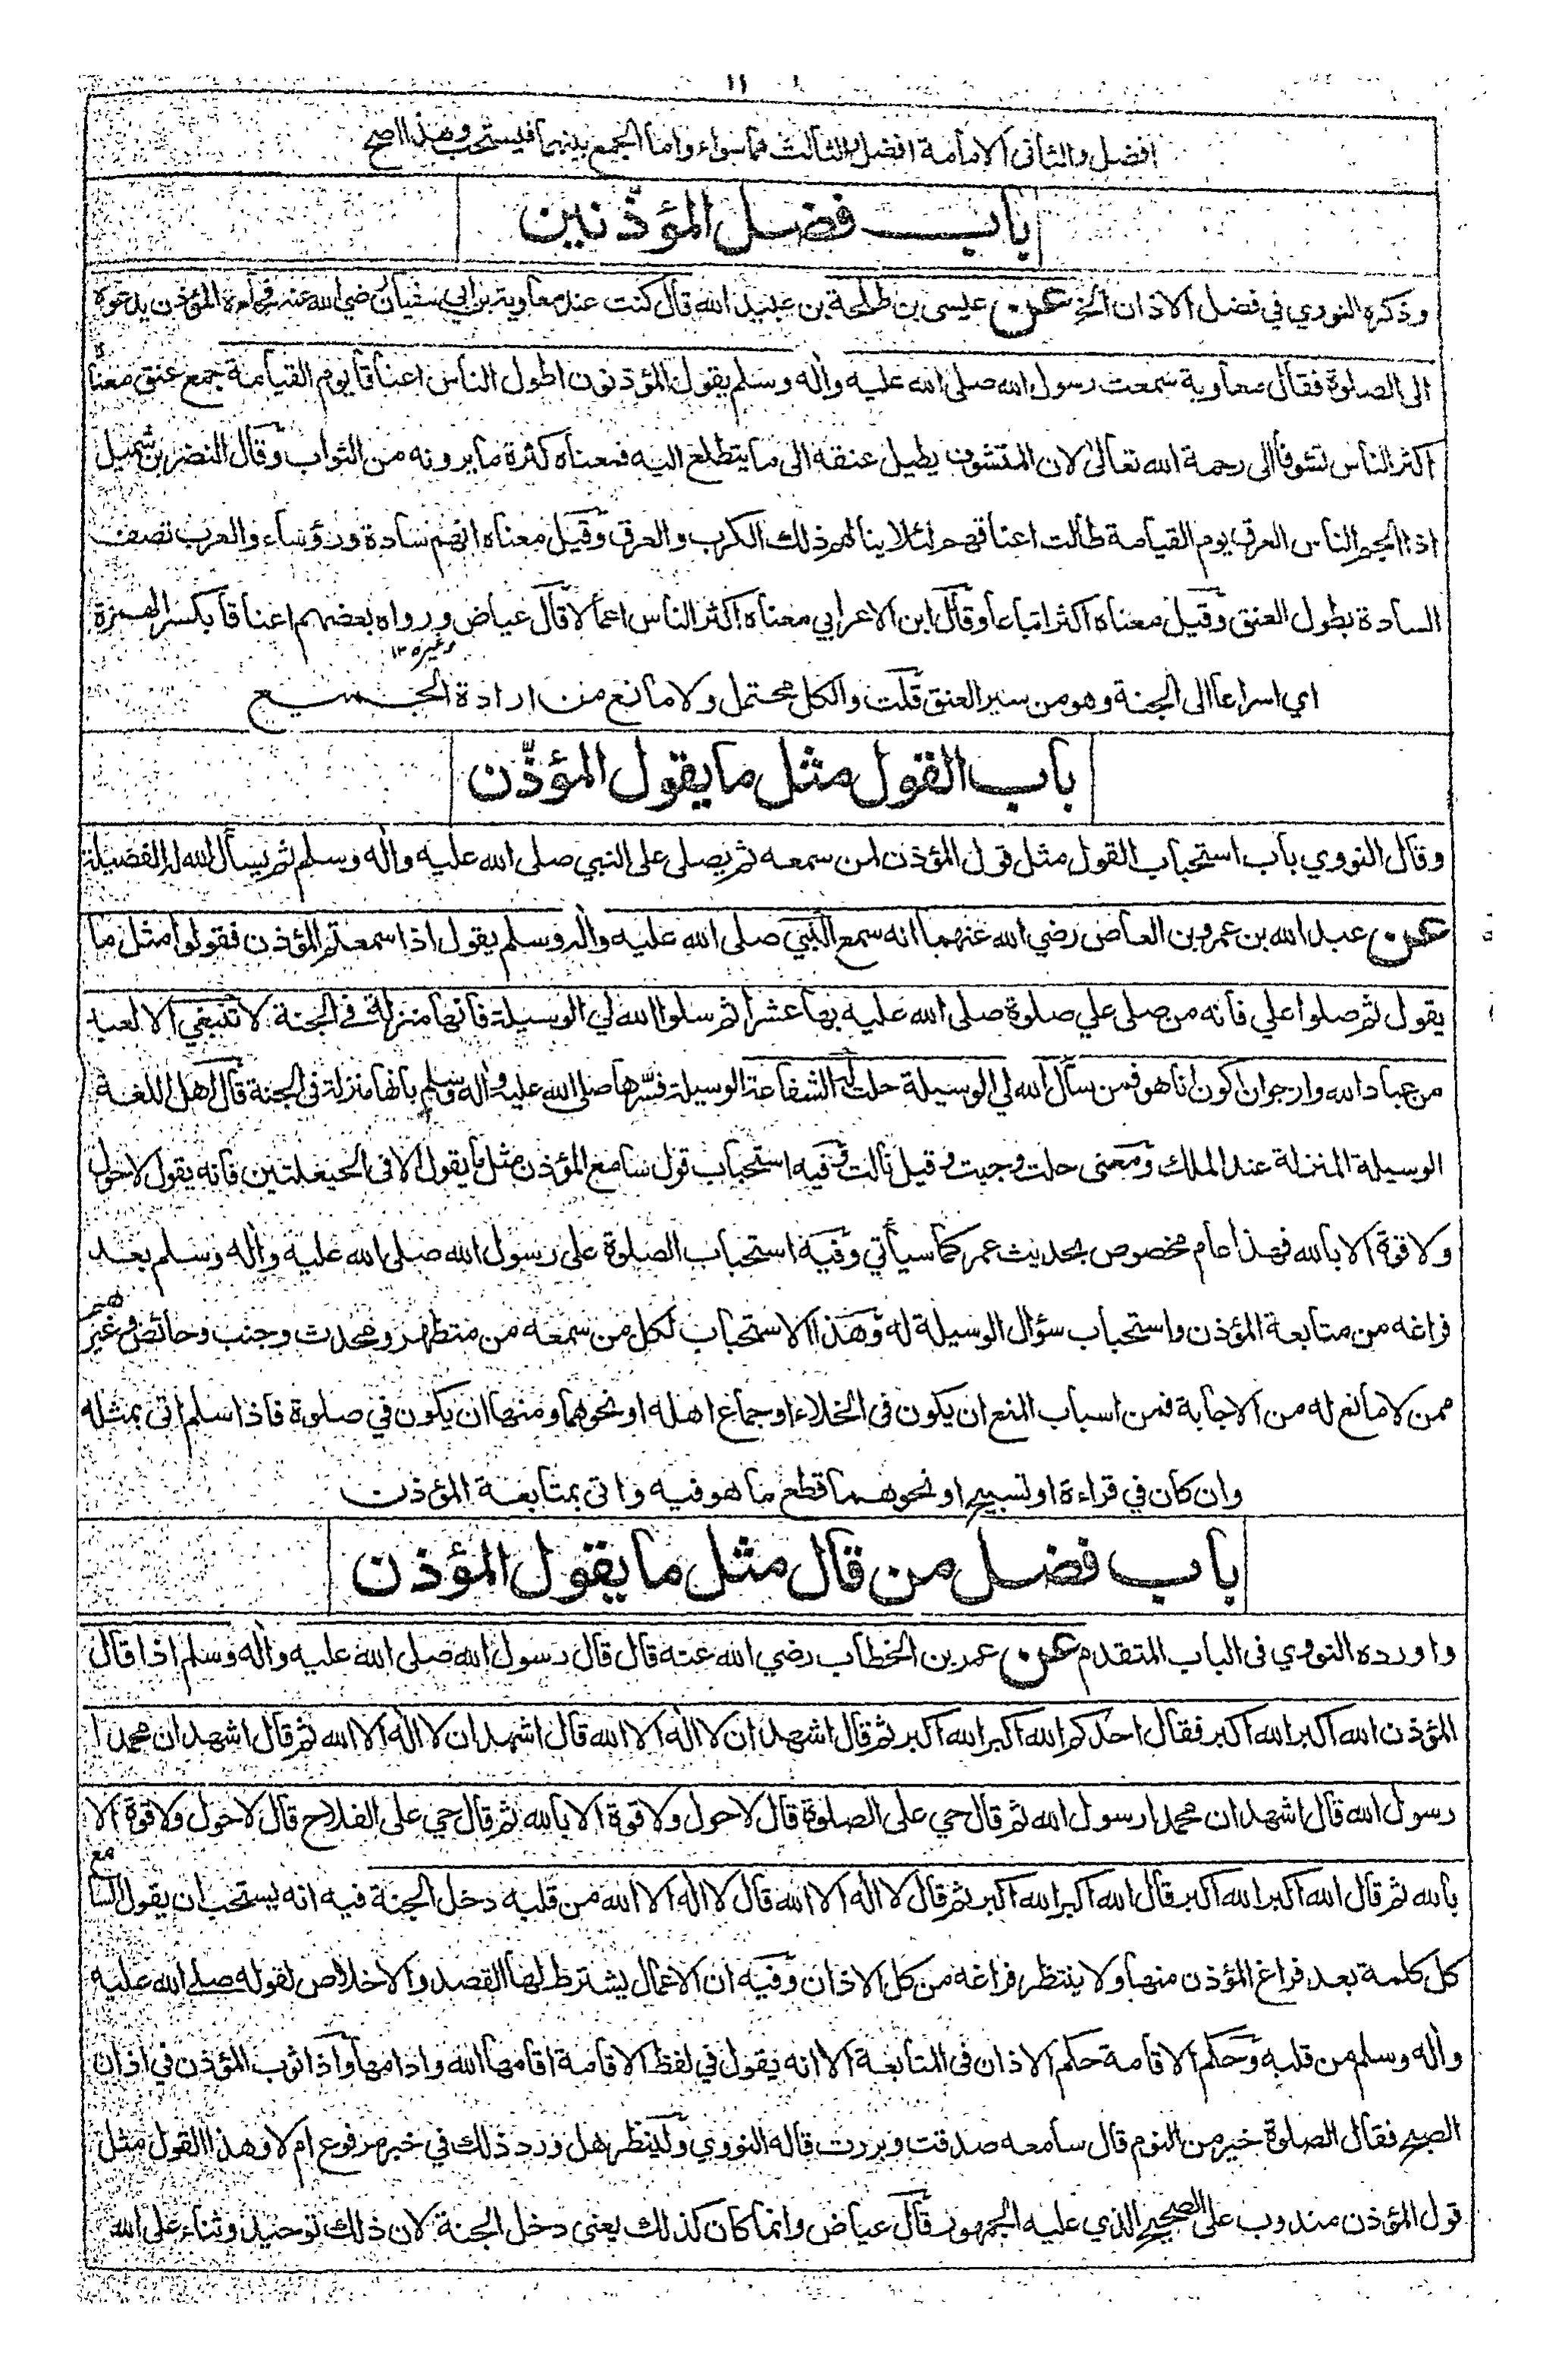 ١١
افضل والثانى الامامة افضل والثالث هما سواء واما الجمع بينهما فيستحب وهذا اصح
باب فضل المؤذنين
وذكره النووي في فضل الاذان الخ عن عيسى بن طلحة بن عبيد الله قال كنت عند معاوية بن ابي سفيان رضي الله عنه فجاءه المؤذن يدعوه
الى الصلوة فقال معاوية سمعت رسول الله صلى الله عليه واٰله وسلم يقول المؤذنون اطول الناس اعناقا يوم القيامة جمع عنق معناه
اكثر الناس تشوفا الى رحمة الله تعالى لان المتشوف يطيل عنقه الى ما يتطلع اليه فمعناه كثرة ما يرونه من الثواب وقال النضر بن شميل
اذا الجم الناس العرق يوم القيامة طالت اعناقهم لئلا ينالهم ذلك الكرب والعرق وقيل معناه انهم سادة ورؤساء والعرب تصف
السادة بطول العنق وقيل معناه اكثر اتباعا وقال ابن الاعرابي معناه اكثر الناس اعمالا قال عياض وغيره ١٢ ورواه بعضهم اعناقا بكسر الهمزة
اي اسراعا الى الجنة وهو من سير العنق قلت والكل محتمل ولا مانع من ارادة الجميع
باب القول مثل ما يقول المؤذّن
وقال النووي باب استحباب القول مثل قول المؤذن لمن سمعه ثم يصلى على النبي صلى الله عليه واٰله وسلم ثم يسأل الله له الفضيلة
عن عبد الله بن عمرو بن العاص رضي الله عنهما انه سمع النبي صلى الله عليه واٰله وسلم يقول اذا سمعتم المؤذن فقولوا مثل ما
يقول ثم صلوا علي فانه من صلى علي صلوة صلى الله عليه بها عشرا ثم سلوا الله لي الوسيلة فانها منزلة في الجنة لا تنبغي الا لعبد
من عباد الله وارجو ان اكون انا هو فمن سأل الله لي الوسيلة حلت له الشفاعة الوسيلة فسّرها صلى الله عليه واٰله وسلم بانها منزلة فى الجنة قال اهل اللغة
الوسيلة المنزلة عند الملك ومعنى حلت وجبت وقيل نالت وفيه استحباب قول سامع المؤذن مثل ما يقول الا فى الحيعلتين فانه يقول لا حول
ولا قوة الا بالله فهذا عام مخصوص بحديث عمر كما سيأتي وفيه استحباب الصلوة على رسول الله صلى الله عليه واٰله وسلم بعد
فراغه من متابعة المؤذن واستحباب سؤال الوسيلة له وهذا الاستحباب لكل من سمعه من متطهر ومحدث وجنب وحائض وغيرهم
ممن لا مانع له من الاجابة فمن اسباب المنع ان يكون فى الخلاء او جماع اهله او نحوهما ومنها ان يكون في صلوة فاذا سلم اتى بمثله
وان كان في قراءة او تسبيح او نحوهما قطع ما هو فيه واتى بمتابعة المؤذن
باب فضل من قال مثل ما يقول المؤذن
واورده النووي فى الباب المتقدم عن عمر بن الخطاب رضي الله عنه قال قال رسول الله صلى الله عليه واٰله وسلم اذا قال
المؤذن الله اكبر الله اكبر فقال احدكم الله اكبر الله اكبر ثم قال اشهد ان لا اله الا الله قال اشهد ان لا اله الا الله ثم قال اشهد ان محمدا
رسول الله قال اشهد ان محمدا رسول الله ثم قال حي على الصلوة قال لا حول ولا قوة الا بالله ثم قال حي على الفلاح قال لا حول ولا قوة الا
بالله ثم قال الله اكبر الله اكبر قال الله اكبر الله اكبر ثم قال لا اله الا الله قال لا اله الا الله من قلبه دخل الجنة فيه انه يستحب ان يقول السامع
كل كلمة بعد فراغ المؤذن منها ولا ينتظر فراغه من كل الاذان وفيه ان الاعمال يشترط لها القصد والاخلاص لقوله صلى الله عليه
واٰله وسلم من قلبه وحكم الاقامة حكم الاذان فى المتابعة الا انه يقول في لفظ الاقامة اقامها الله وادامها واذا ثوب المؤذن في اذان
الصبح فقال الصلوة خير من النوم قال سامعه صدقت وبررت قاله النووي ولينظر هل ورد ذلك في خبر مرفوع ام لا وهذا القول مثل
قول المؤذن مندوب على الصحيح الذي عليه الجمهور قال عياض وانما كان كذلك يعنى دخل الجنة لان ذلك توحيد وثناء على الله